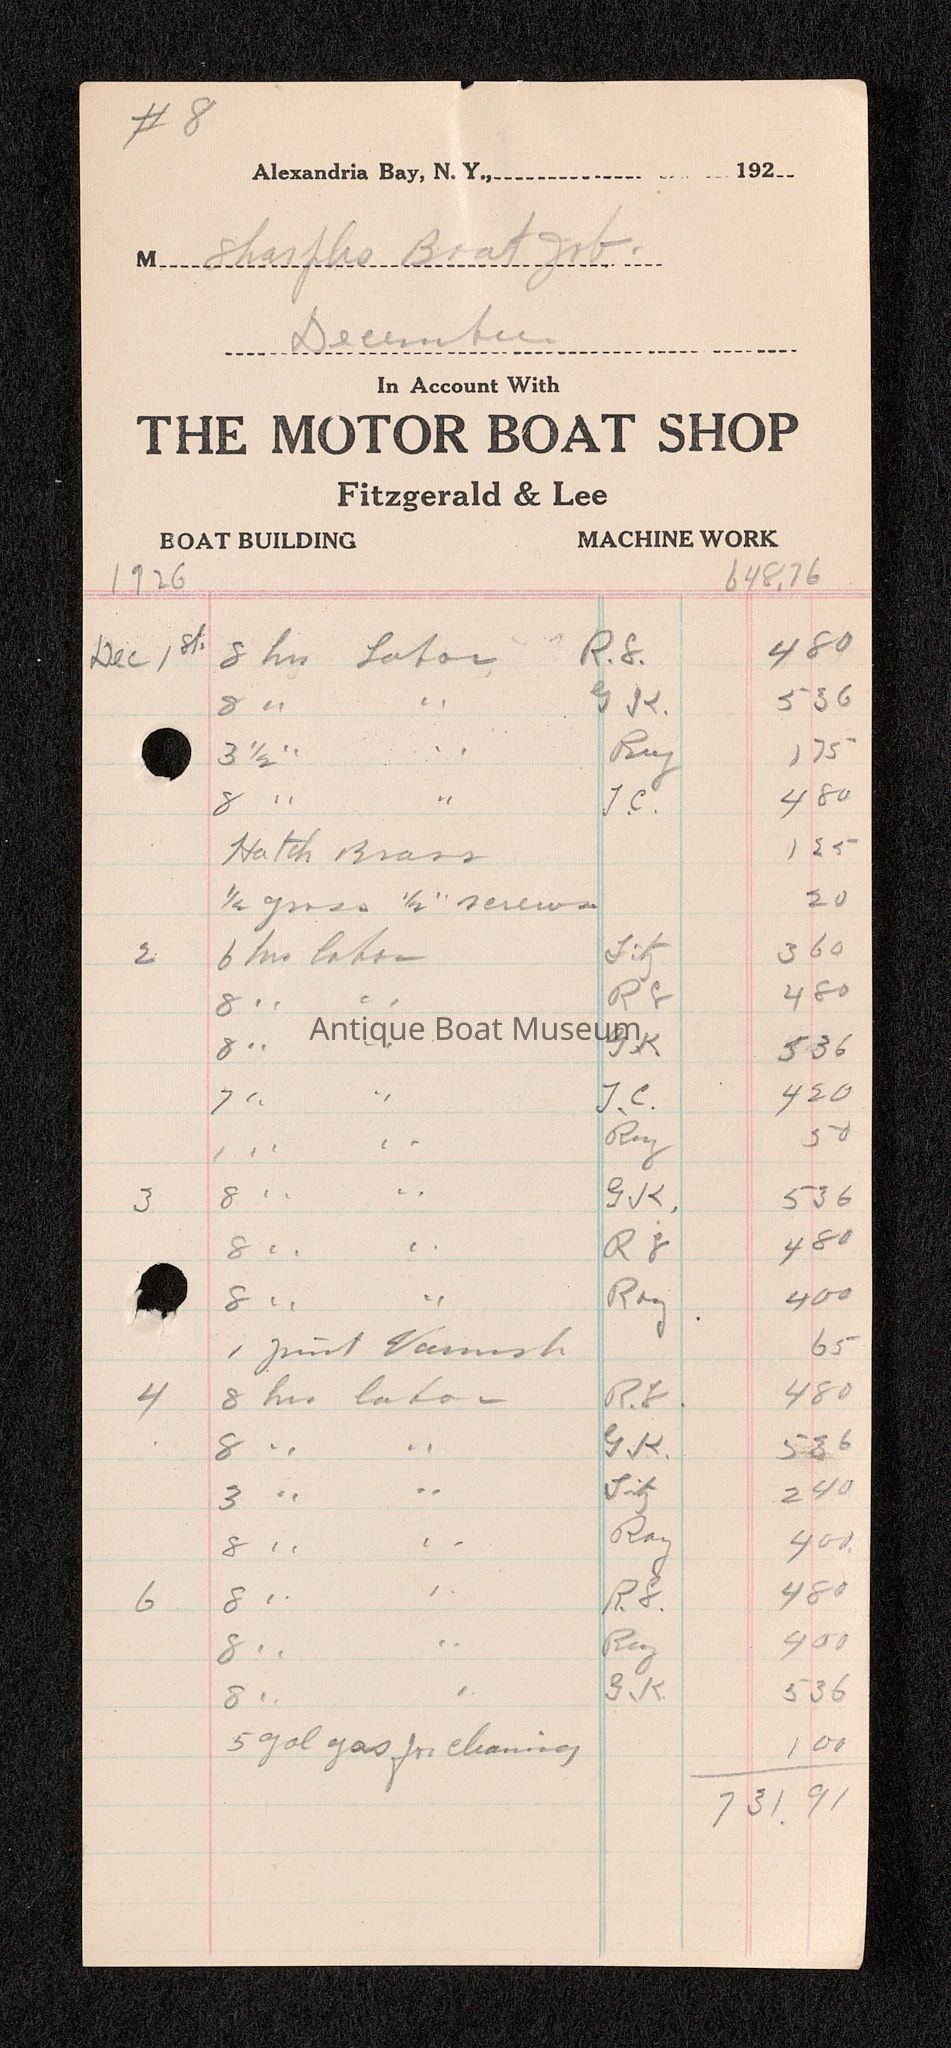 # 8
Alexandria Bay, N. Y., 192
M Sharples Boat Job.
December
In Account With
THE MOTOR BOAT SHOP
Fitzgerald & Lee
BOAT BUILDING MACHINE WORK
1926 648.76
Dec 1st. 8 hrs Labor R.S. 4 80
8 " " G.K. 5 36
3 1/2 " " Roy 1 75
8 " " J.C. 4 80
Hatch Brass 1 25
1/2 gross 1/2" screws 20
2 6 hrs labor Fitz 3 60
8 " " R S 4 80
Antique Boat Museum
8 " " G K 5 36
7 " " J.C. 4 20
1 " " Roy 50
3 8 " " G K. 5 36
8 " " R S 4 80
8 " " Roy 4 00
1 pint Varnish 65
4 8 hrs labor R.S. 4 80
8 " " G.K. 5 36
3 " " Fitz 2 40
8 " " Roy 4 00
6 8 " " R.S. 4 80
8 " " Roy 4 00
8 " " G.K. 5 36
5 gal gas for cleaning 1 00
731.91